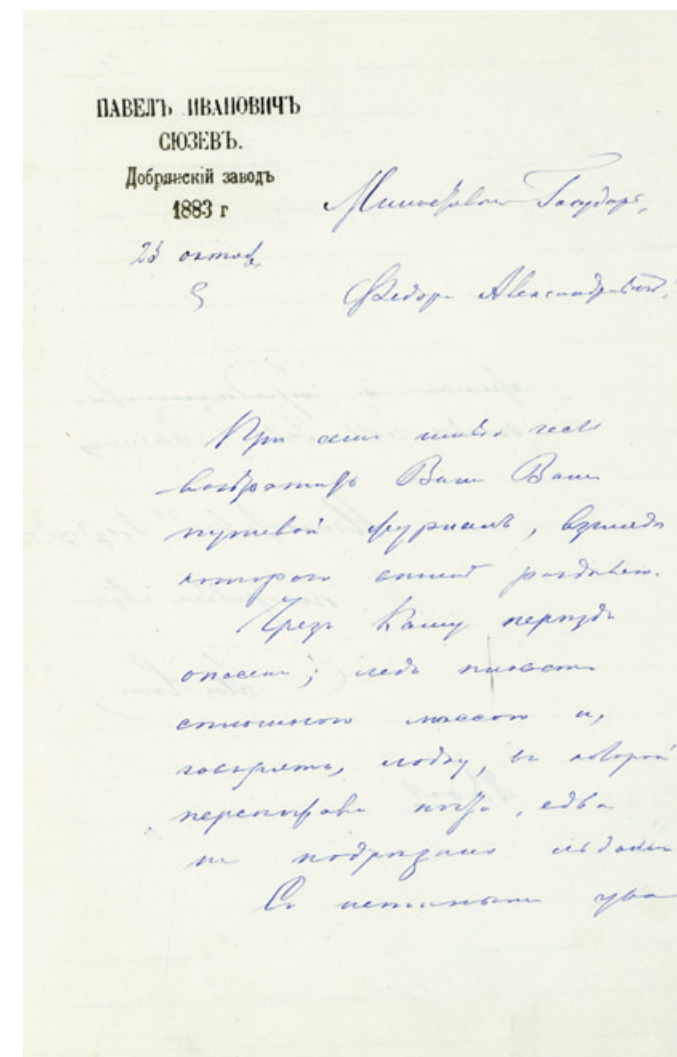 ПАВЕЛЪ ИВАНОВИЧЪ
СЮЗЕВЪ.
Добрянскій заводъ
1883 г
Милостивый Государь,
23 октяб
Федоръ Александровичъ!
При семъ имѣю честь
возвратить Вамъ Вашъ
путевой журналъ, взгляды
которого вполнѣ раздѣляю.
Чрезъ Каму переѣздъ
опасенъ; ледъ плыветъ
сплошною массою и,
говорятъ, лодку, въ которой
переправ почта, едва
не подрѣзало льдомъ
Съ истиннымъ ува